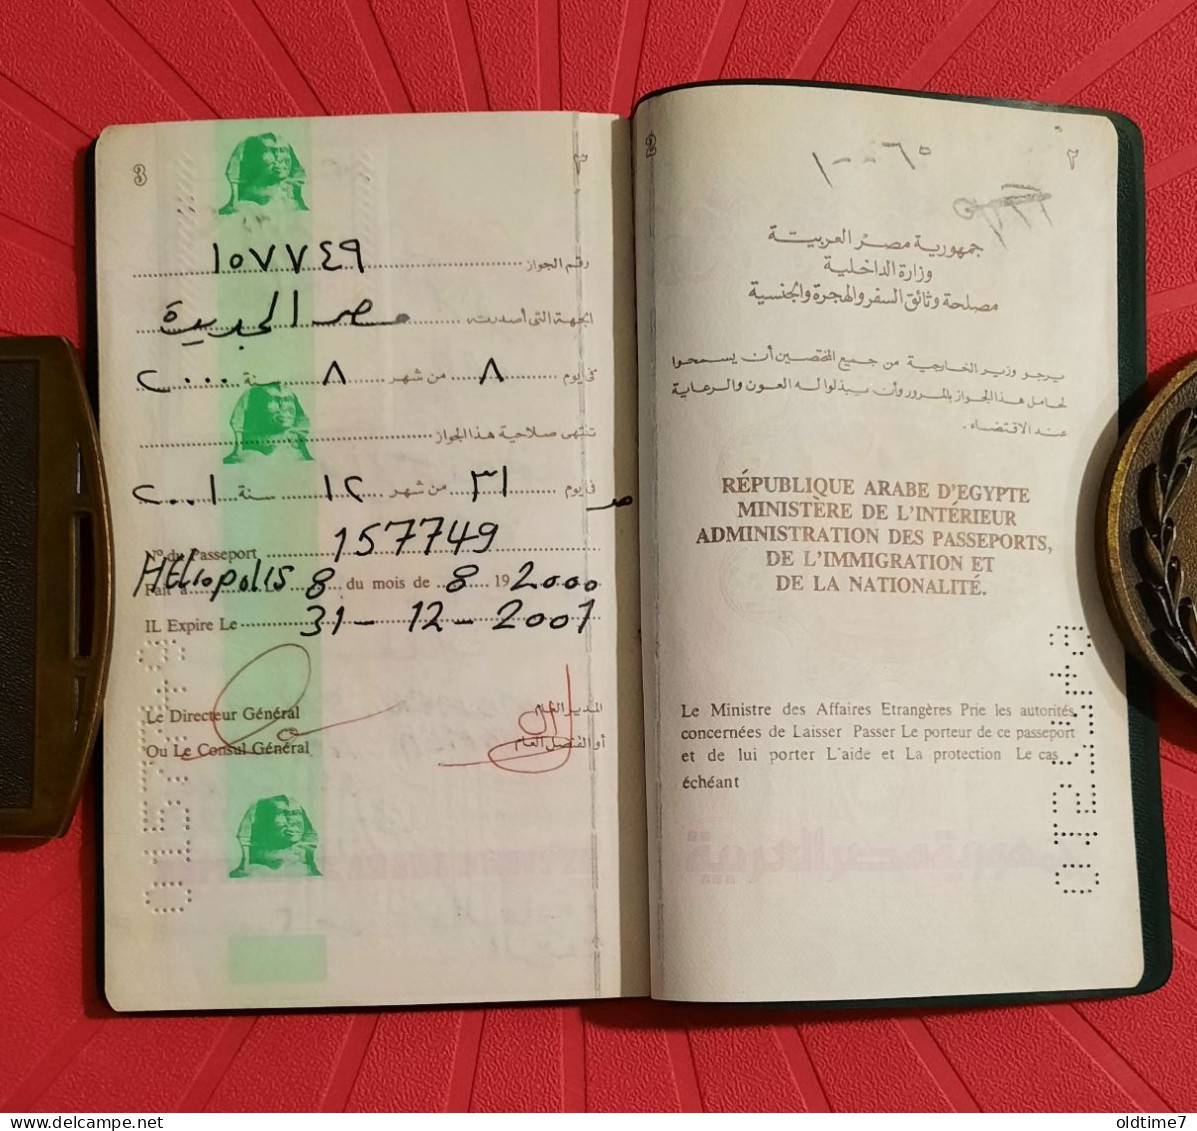 2
٢
جمهورية مصر العربية
وزارة الداخلية
مصلحة وثائق السفر والهجرة والجنسية
يرجو وزير الخارجية من جميع المختصين أن يسمحوا
لحامل هذا الجواز بالمرور وأن يبذلوا له العون والرعاية
عند الاقتضاء.
RÉPUBLIQUE ARABE D'EGYPTE
MINISTÈRE DE L'INTÉRIEUR
ADMINISTRATION DES PASSEPORTS,
DE L'IMMIGRATION ET
DE LA NATIONALITÉ.
Le Ministre des Affaires Etrangères Prie les autorités
concernées de Laisser Passer Le porteur de ce passeport
et de lui porter L'aide et La protection Le cas
échéant
جمهورية مصر العربية
3
٣
رقم الجواز ١٥٧٧٤٩
الجهة التى أصدرته مصر الجديدة
فى يوم ٨ من شهر ٨ سنة ٢٠٠٠
تنتهى صلاحية هذا الجواز
فى يوم ٣١ من شهر ١٢ سنة ٢٠٠١
N° du Passeport 157749
Fait à Héliopolis 8 du mois de 8 19 2000
IL Expire Le 31-12-2001
Le Directeur Général المدير العام
Ou Le Consul Général أو القنصل العام
oldtime7